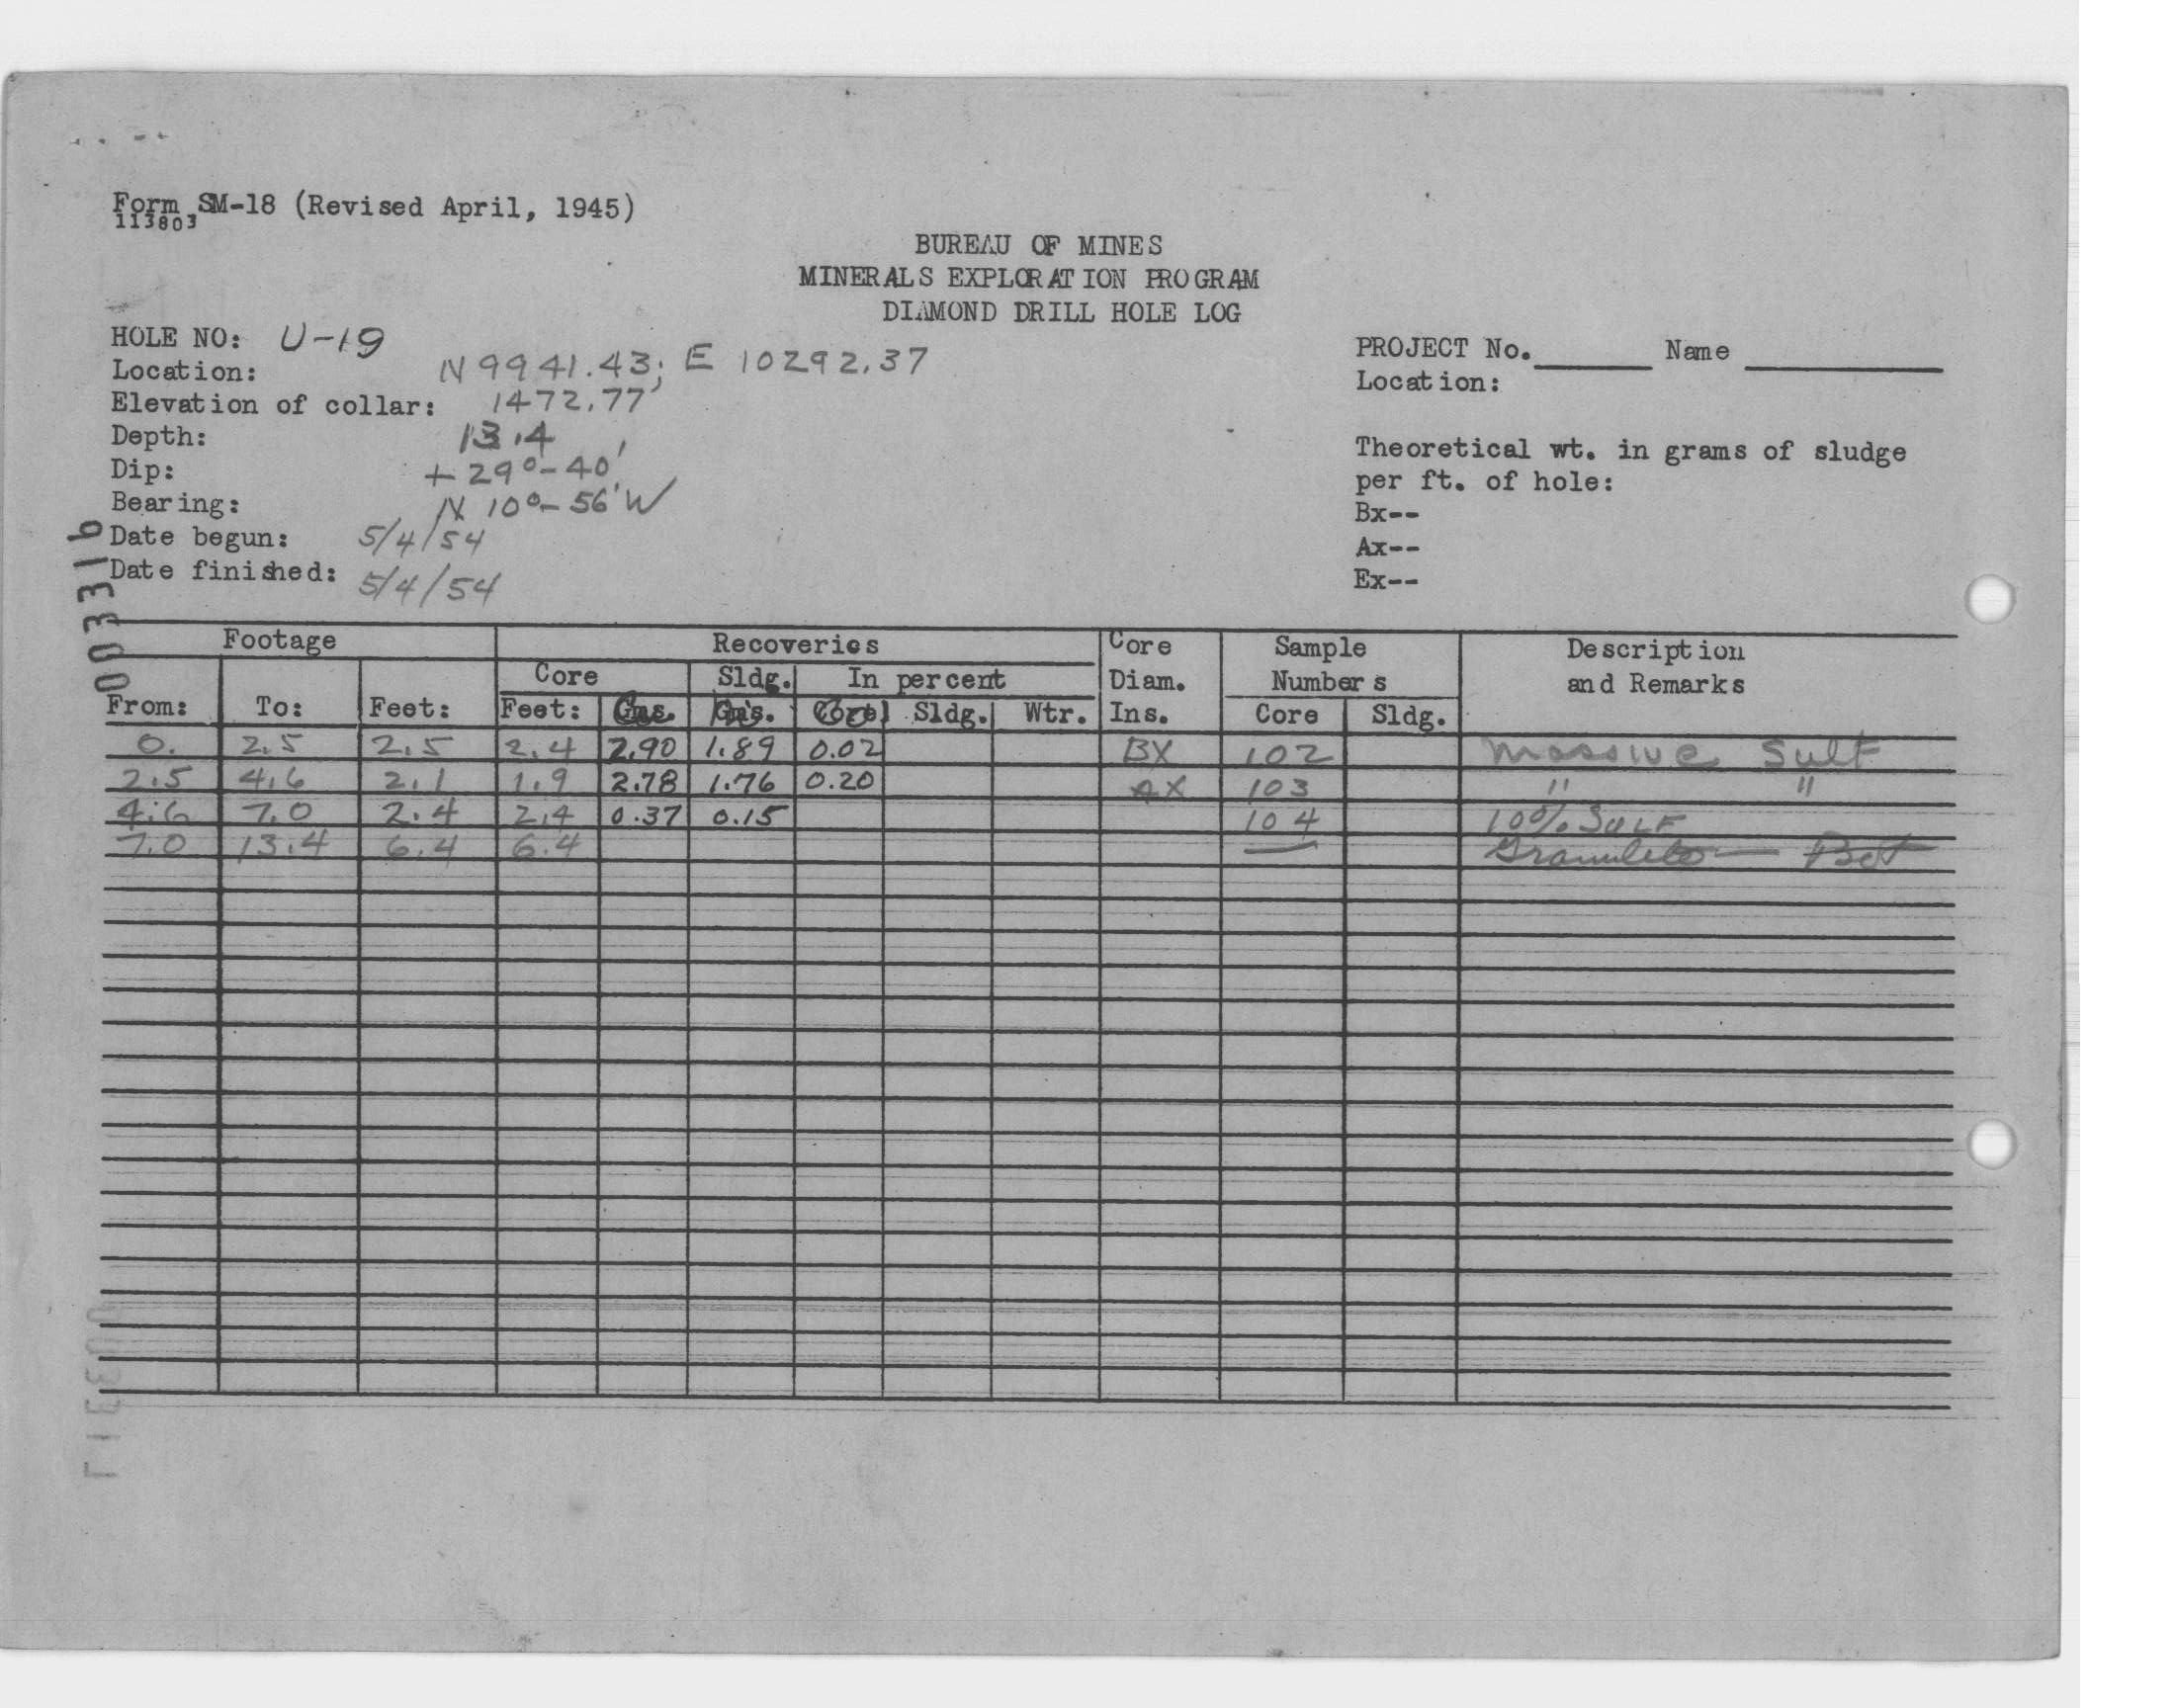 Form SM-18 (Revised April, 1945)
113803
BUREAU OF MINES
MINERALS EXPLORATION PROGRAM
DIAMOND DRILL HOLE LOG
HOLE NO: U-19
Location: N 9941.43; E 10292.37
Elevation of collar: 1472.77'
Depth: 13.4
Dip: +29°-40'
Bearing: N 10°-56'W
Date begun: 5/4/54
Date finished: 5/4/54
PROJECT No. Name
Location:
Theoretical wt. in grams of sludge
per ft. of hole:
Bx--
Ax--
Ex--
003316
Footage Recoveries Core Sample Description
Core Sldg. In percent Diam. Numbers and Remarks
From: To: Feet: Feet: Cu Ni Co Sldg. Wtr. Ins. Core Sldg.
0. 2.5 2.5 2.4 2.90 1.89 0.02 BX 102 Massive Sulf
2.5 4.6 2.1 1.9 2.78 1.76 0.20 AX 103 " "
4.6 7.0 2.4 2.4 0.37 0.15 104 10% SULF
7.0 13.4 6.4 6.4 — Granulite — Bot